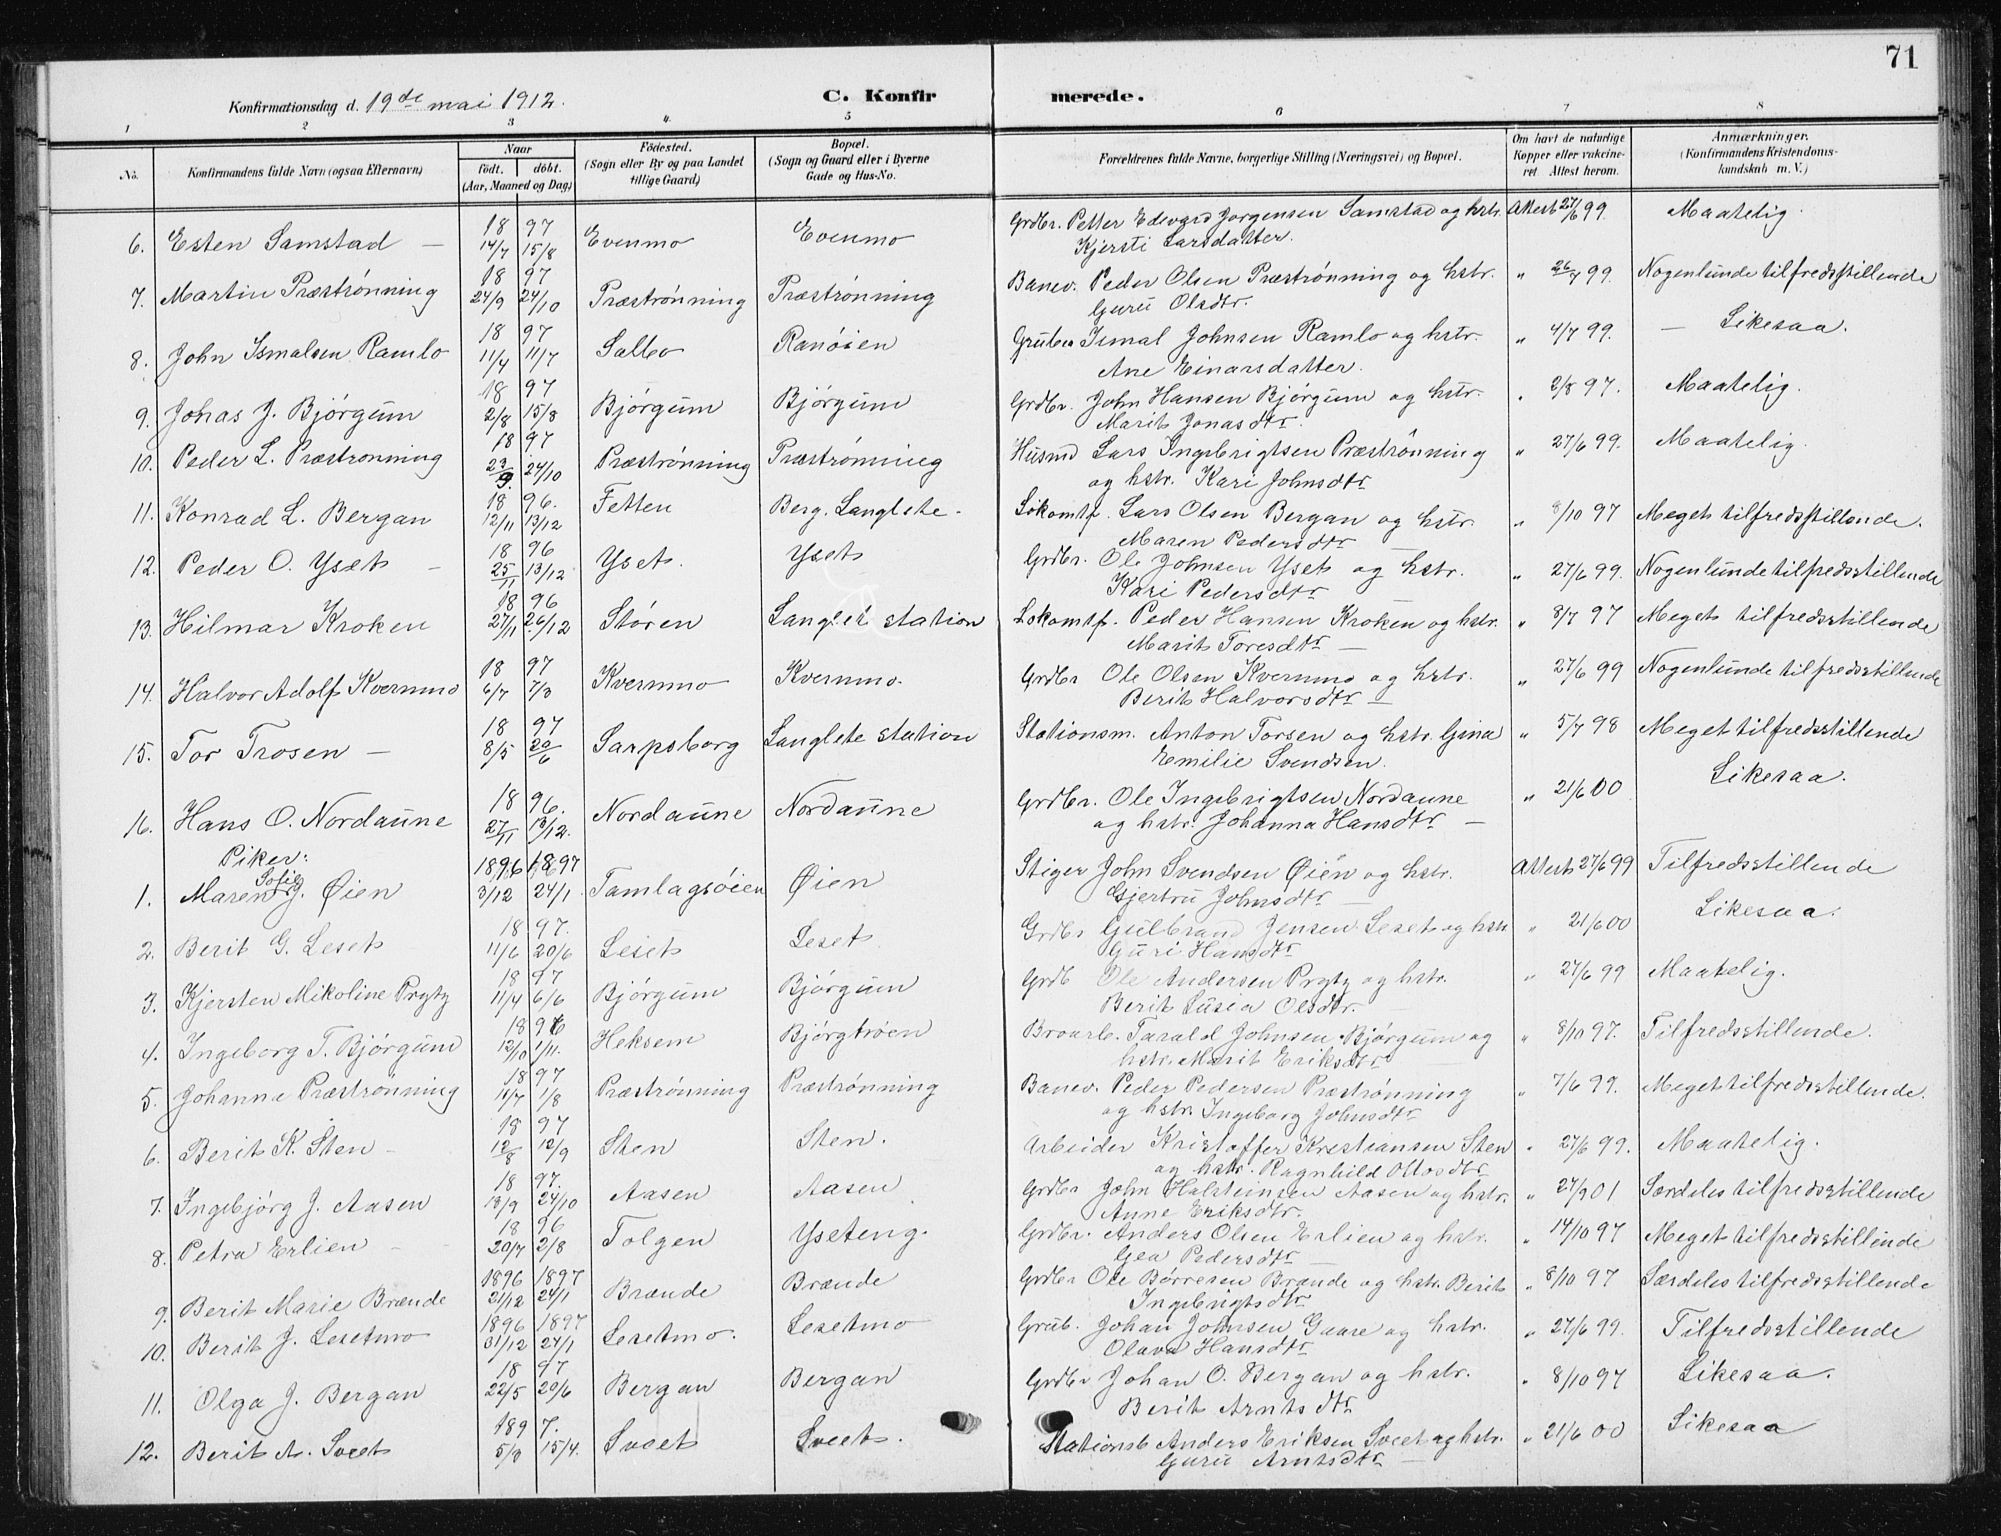 71
Konfirmationsdag d. 19de mai 1912. C. Konfir merede.
1 2 3 4 5 6 7 8
No. Konfirmandens fulde Navn (ogsaa Efternavn) Naar født. døbt. (Aar, Maaned og Dag) Fødested. (Sogn eller By og paa Landet tillige Gaard) Bopæl. (Sogn og Gaard eller i Byerne Gade og Hus-No. Forældrenes fulde Navne, borgerlige Stilling (Næringsvei) og Bopæl. Om havt de naturlige Kopper eller vakcineret Attest herom. Anmærkninger. (Konfirmandens Kristendomskundskab m. V.)
6. Esten Samstad — 18 97 14/7 15/8 Evenmo Evenmo Grdbr. Petter Edevard Jørgensen Samstad og hstr. Attest 27/6 99. Maatelig.
Kjersti Larsdatter.
7. Martin Præstrønning 18 97 24/9 24/10 Præstrønning Præstrønning Banev. Peder Olsen Præstrønning og hstr. " 26/7 99. Nogenlunde tilfredsstillende
Guru Olsdtr.
8. John Ismalsen Ramlo 18 97 11/4 11/7 Salbo Ranøien Grubea Ismal Johnsen Ramlo og hstr. " 4/7 99. — Likesaa.
Ane Einarsdatter.
9. Johas J. Bjørgum 18 97 2/8 15/8 Bjørgum Bjørgum Grdbr. John Hansen Bjørgum og hstr. " 2/8 97. Maatelig.
Marit Jonasdtr.
10. Peder L. Præstrønning 18 97 23/9. 24/10 Præstrønning Præstrønning Husmd Lars Ingebrigtsen Præstrønning " 27/6 99. Maatelig.
og hstr. Kari Johnsdtr.
11. Konrad L. Bergan 18 96. 12/11 13/12 Fetten Berg. Langlete. Lokomtf. Lars Olsen Bergan og hstr. " 8/10 97 Meget tilfredsstillende.
Maren Pedersdtr
12. Peder O. Yset — 18 96 25/11 13/12 Yset. Yset Grdbr. Ole Johnsen Yset og hstr. " 27/6 99. Nogenlunde tilfredsstillende
Kari Pedersdtr
13. Hilmar Kroken 18 96 27/11 26/12 Støren Langlete station Lokomtf. Peder Hansen Kroken og hstr. " 8/7 97 Meget tilfredsstillende
Marit Toresdtr —
14. Halvor Adolf Kvernmo 18 97 6/7 7/8 Kvernmo Kvernmo. Grdbr Ole Olsen Kvernmo og hstr. " 27/6 99 Nogenlunde tilfredsstillende
Berit Halvorsdtr —
15. Tor Trosen — 18 97 8/5 20/6 Sarpsborg Langlete station Stationsm. Anton Torsen og hstr. Gina " 5/7 98 Meget tilfredsstillende
Emilie Svendsen.
16. Hans O. Nordaune 18 96. 27/11 13/12. Nordaune Nordaune Grdbr. Ole Ingebrigtsen Nordaune " 21/6 00 Likesaa.
og hstr. Johanna Hansdtr —
Piker:
1. Maren Sofie J. Øien 1896 1897 3/12 24/1 Tamlagsøien Øien Stiger John Svendsen Øien og hstr. Attest 27/6 99 Tilfredsstillende
Gjertru Johnsdtr —
2. Berit G. Leset 18 97. 11/6 20/6 Leset Leset Grdbr Gulbrand Jensen Leset og hstr " 21/6 00 Likesaa.
Guri Hansdtr
3. Kjersten Mikoline Prytz 18 97 11/4 6/6 Bjørgum Bjørgum Grdb Ole Andersen Prytz og hstr. " 27/6 99 Maatelig.
Berit Lusia Olsdtr.
4. Ingeborg T. Bjørgum 18 96 12/10 1/11. Heksem Bjørgtrøen Broarb. Tarald Johnsen Bjørgum og " 8/10 97. Tilfredsstillende.
hstr. Marit Eriksdtr
5. Johanne Præstrønning 18 97 11/7 1/8 Præstrønning Præstrønning Banev. Peder Pedersen Præstrønning " 7/6 99. Meget tilfredsstillende.
og hstr. Ingeborg Johnsdtr
6. Berit K. Sten - 18 97 12/8 12/9 Sten Sten. Arbeider Kristoffer Kristiansen Sten " 27/6 99. Maatelig.
og hstr. Ragnhild Ottosdtr
7. Ingebjørg J. Aasen 18 97. 13/9 24/10 Aasen Aasen Grdbr John Halsteinsen Aasen og hstr. " 27/9 01 Særdeles tilfredsstillende
Anne Eriksdtr.
8. Petra Erlien - 18 96 20/7 2/8 Tolgen Yseteng. Grdbr. Anders Olsen Erlien og hstr. " 14/10 97 Meget tilfredsstillende
Gea Pedersdtr —
9. Berit Marie Brænde 1896 1897 21/12 24/1 Brænde Brænde Grdbr Ole Børresen Brænde og hstr. Berit " 8/10 97 Særdeles tilfredsstillende
Ingebrigtsdtr
10. Berit J. Lesetmo 1896 1897 31/12 24/1 Lesetmo. Lesetmo Grub. Johan Johnsen Gaare og hstr. " 27/6 99. Tilfredsstillende
Olava Hansdtr
11. Olga J. Bergan 18 97 22/5 20/6 Bergan Bergan Grdbr Johan O. Bergan og hstr. " 8/10 97 Likesaa.
Berit Arntsdtr
12. Berit A. Sveet 1897. 5/3 15/4. Sveet Sveet. Stationsb Anders Eriksen Sveet og hstr. " 21/6 00 Likesaa
Guru Arntsdtr —